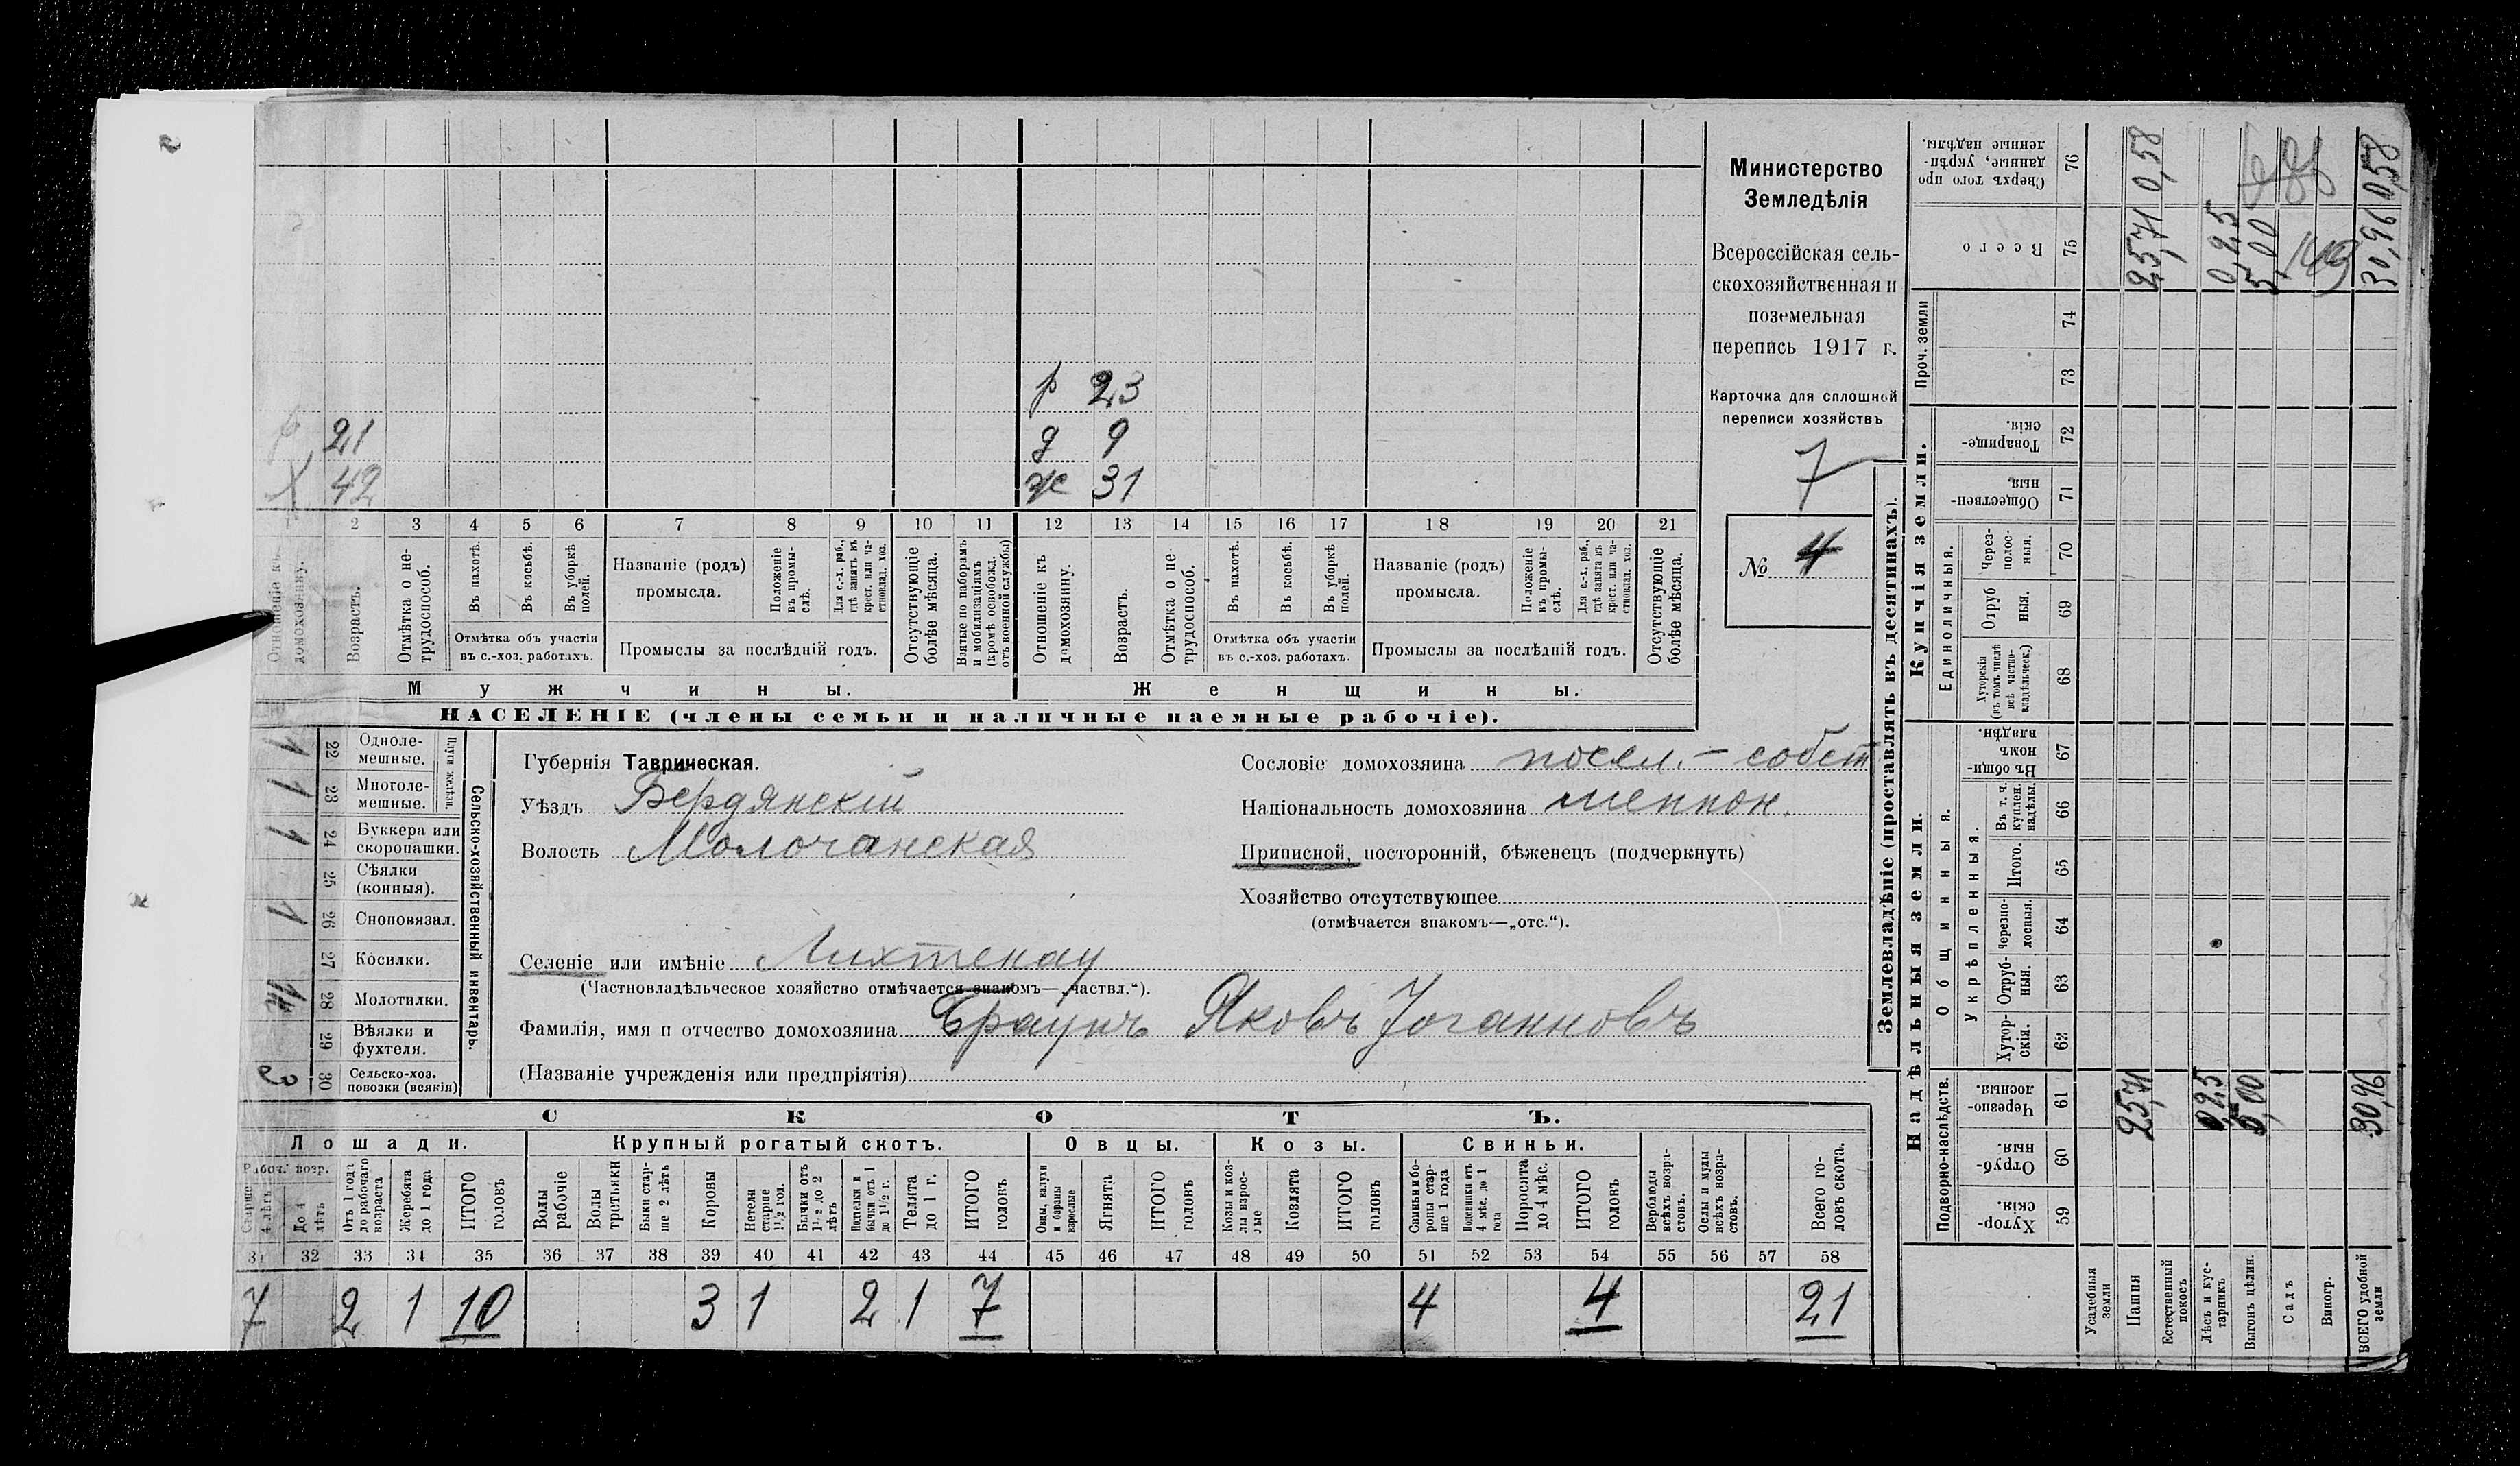 Министерство
Земледѣлія
Всероссійская сель-
скохозяйственная и
поземельная
перепись 1917 г.
Карточка для сплошной
переписи хозяйствъ
7
№ 4
р 23
р 21 д 9
Х 42 ж 31
1 2 3 4 5 6 7 8 9 10 11 12 13 14 15 16 17 18 19 20 21
Отношеніе къ домохозяину.
Возрастъ.
Отмѣтка о нетрудоспособ.
Въ пахотѣ.
Въ косьбѣ.
Въ уборкѣ полей.
Отмѣтка объ участіи
въ с.-хоз. работахъ.
Названіе (родъ)
промысла.
Положеніе въ промыслѣ.
Для с.-х. раб., гдѣ занятъ въ крест. или частновлад. хоз.
Промыслы за послѣдній годъ.
Отсутствующіе болѣе мѣсяца.
Взятые по наборамъ и мобилизаціямъ (кромѣ освобожд. отъ военной службы)
Отношеніе къ домохозяину.
Возрастъ.
Отмѣтка о нетрудоспособ.
Въ пахотѣ.
Въ косьбѣ.
Въ уборкѣ полей.
Отмѣтка объ участіи
въ с.-хоз. работахъ.
Названіе (родъ)
промысла.
Положеніе въ промыслѣ.
Для с.-х. раб., гдѣ занята въ крест. или частновлад. хоз.
Промыслы за послѣдній годъ.
Отсутствующіе болѣе мѣсяца.
Мужчины. Женщины.
НАСЕЛЕНІЕ (члены семьи и наличные наемные рабочіе).
Сельско-хозяйственный инвентарь.
Плуги желѣзн.
1 22 Одноле-
мешные.
1 23 Многоле-
мешные.
1 24 Буккера или
скоропашки.
25 Сѣялки
(конныя).
1 26 Сноповязал.
27 Косилки.
28 Молотилки.
29 Вѣялки и
фухтеля.
3 30 Сельско-хоз.
повозки (всякія)
Губернія Таврическая.
Уѣздъ Бердянскій
Волость Молочанская
Сословіе домохозяина посел.-собст
Національность домохозяина меннон.
Приписной, посторонній, бѣженецъ (подчеркнуть)
Хозяйство отсутствующее
(отмѣчается знакомъ—„отс.“).
Селеніе или имѣніе Лихтенау
(Частновладѣльческое хозяйство отмѣчается знакомъ—„частвл.“).
Фамилія, имя и отчество домохозяина Браунъ Яковъ Іоганновъ
(Названіе учрежденія или предпріятія)
СКОТЪ.
Лошади. Крупный рогатый скотъ. Овцы. Козы. Свиньи.
Рабоч. возр.
Старше 4 лѣтъ
До 4 лѣтъ
Отъ 1 года до рабочаго возраста
Жеребята до 1 года
ИТОГО головъ
Волы рабочіе
Волы третьяки
Быки старше 2 лѣтъ
Коровы
Нетели старше 1½ год.
Бычки отъ 1½ до 2 лѣтъ
Подтелки и бычки отъ 1 до 1½ г.
Телята до 1 г.
ИТОГО головъ
Овцы, валухи и бараны взрослые
Ягнята
ИТОГО головъ
Козы и козлы взрослые
Козлята
ИТОГО головъ
Свиньи и боровы старше 1 года
Подсвинки отъ 4 мѣс. до 1 года
Поросята до 4 мѣс.
ИТОГО головъ
Верблюды всѣхъ возрастовъ.
Ослы и мулы всѣхъ возрастовъ.
Всего головъ скота.
31 32 33 34 35 36 37 38 39 40 41 42 43 44 45 46 47 48 49 50 51 52 53 54 55 56 57 58
7 2 1 10 3 1 2 1 7 4 4 21
Землевладѣніе (проставлять въ десятинахъ).
Надѣльныя земли. Купчія земли. Проч. земли
Подворно-наслѣдств. Общинныя. Единоличныя.
Укрѣпленныя.
Хуторскія. 59
Отрубныя. 60
Черезполосныя. 61
Хуторскія. 62
Отрубныя. 63
Черезполосныя. 64
Итого. 65
Въ т. ч. куплен. надѣлы. 66
Въ общинномъ владѣн. 67
Хуторскія (въ томъ числѣ всѣ частновладѣльческ.) 68
Отрубныя. 69
Черезполосныя. 70
Общественныя. 71
Товарищескія. 72
73
74
Всего 75
Сверхъ того проданные, укрѣпленные надѣлы. 76
Усадебныя земли
Пашня 25,71 25,71 0,58
Естественный покосъ
Лѣсъ и кустарникъ 0,25 0,25
Выгонъ цѣлин. 5,00 5,00
Садъ
Виногр.
ВСЕГО удобной земли 30,96 30,96 0,58